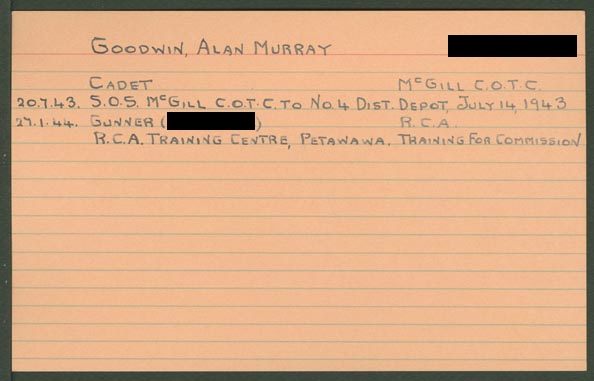 GOODWIN, ALAN MURRAY
CADET McGILL C.O.T.C.
20.7.43. S.O.S. McGILL C.O.T.C. TO NO.4 DIST. DEPOT, JULY 14, 1943
27.1.44. GUNNER ( ) R.C.A.
R.C.A. TRAINING CENTRE, PETAWAWA. TRAINING FOR COMMISSION